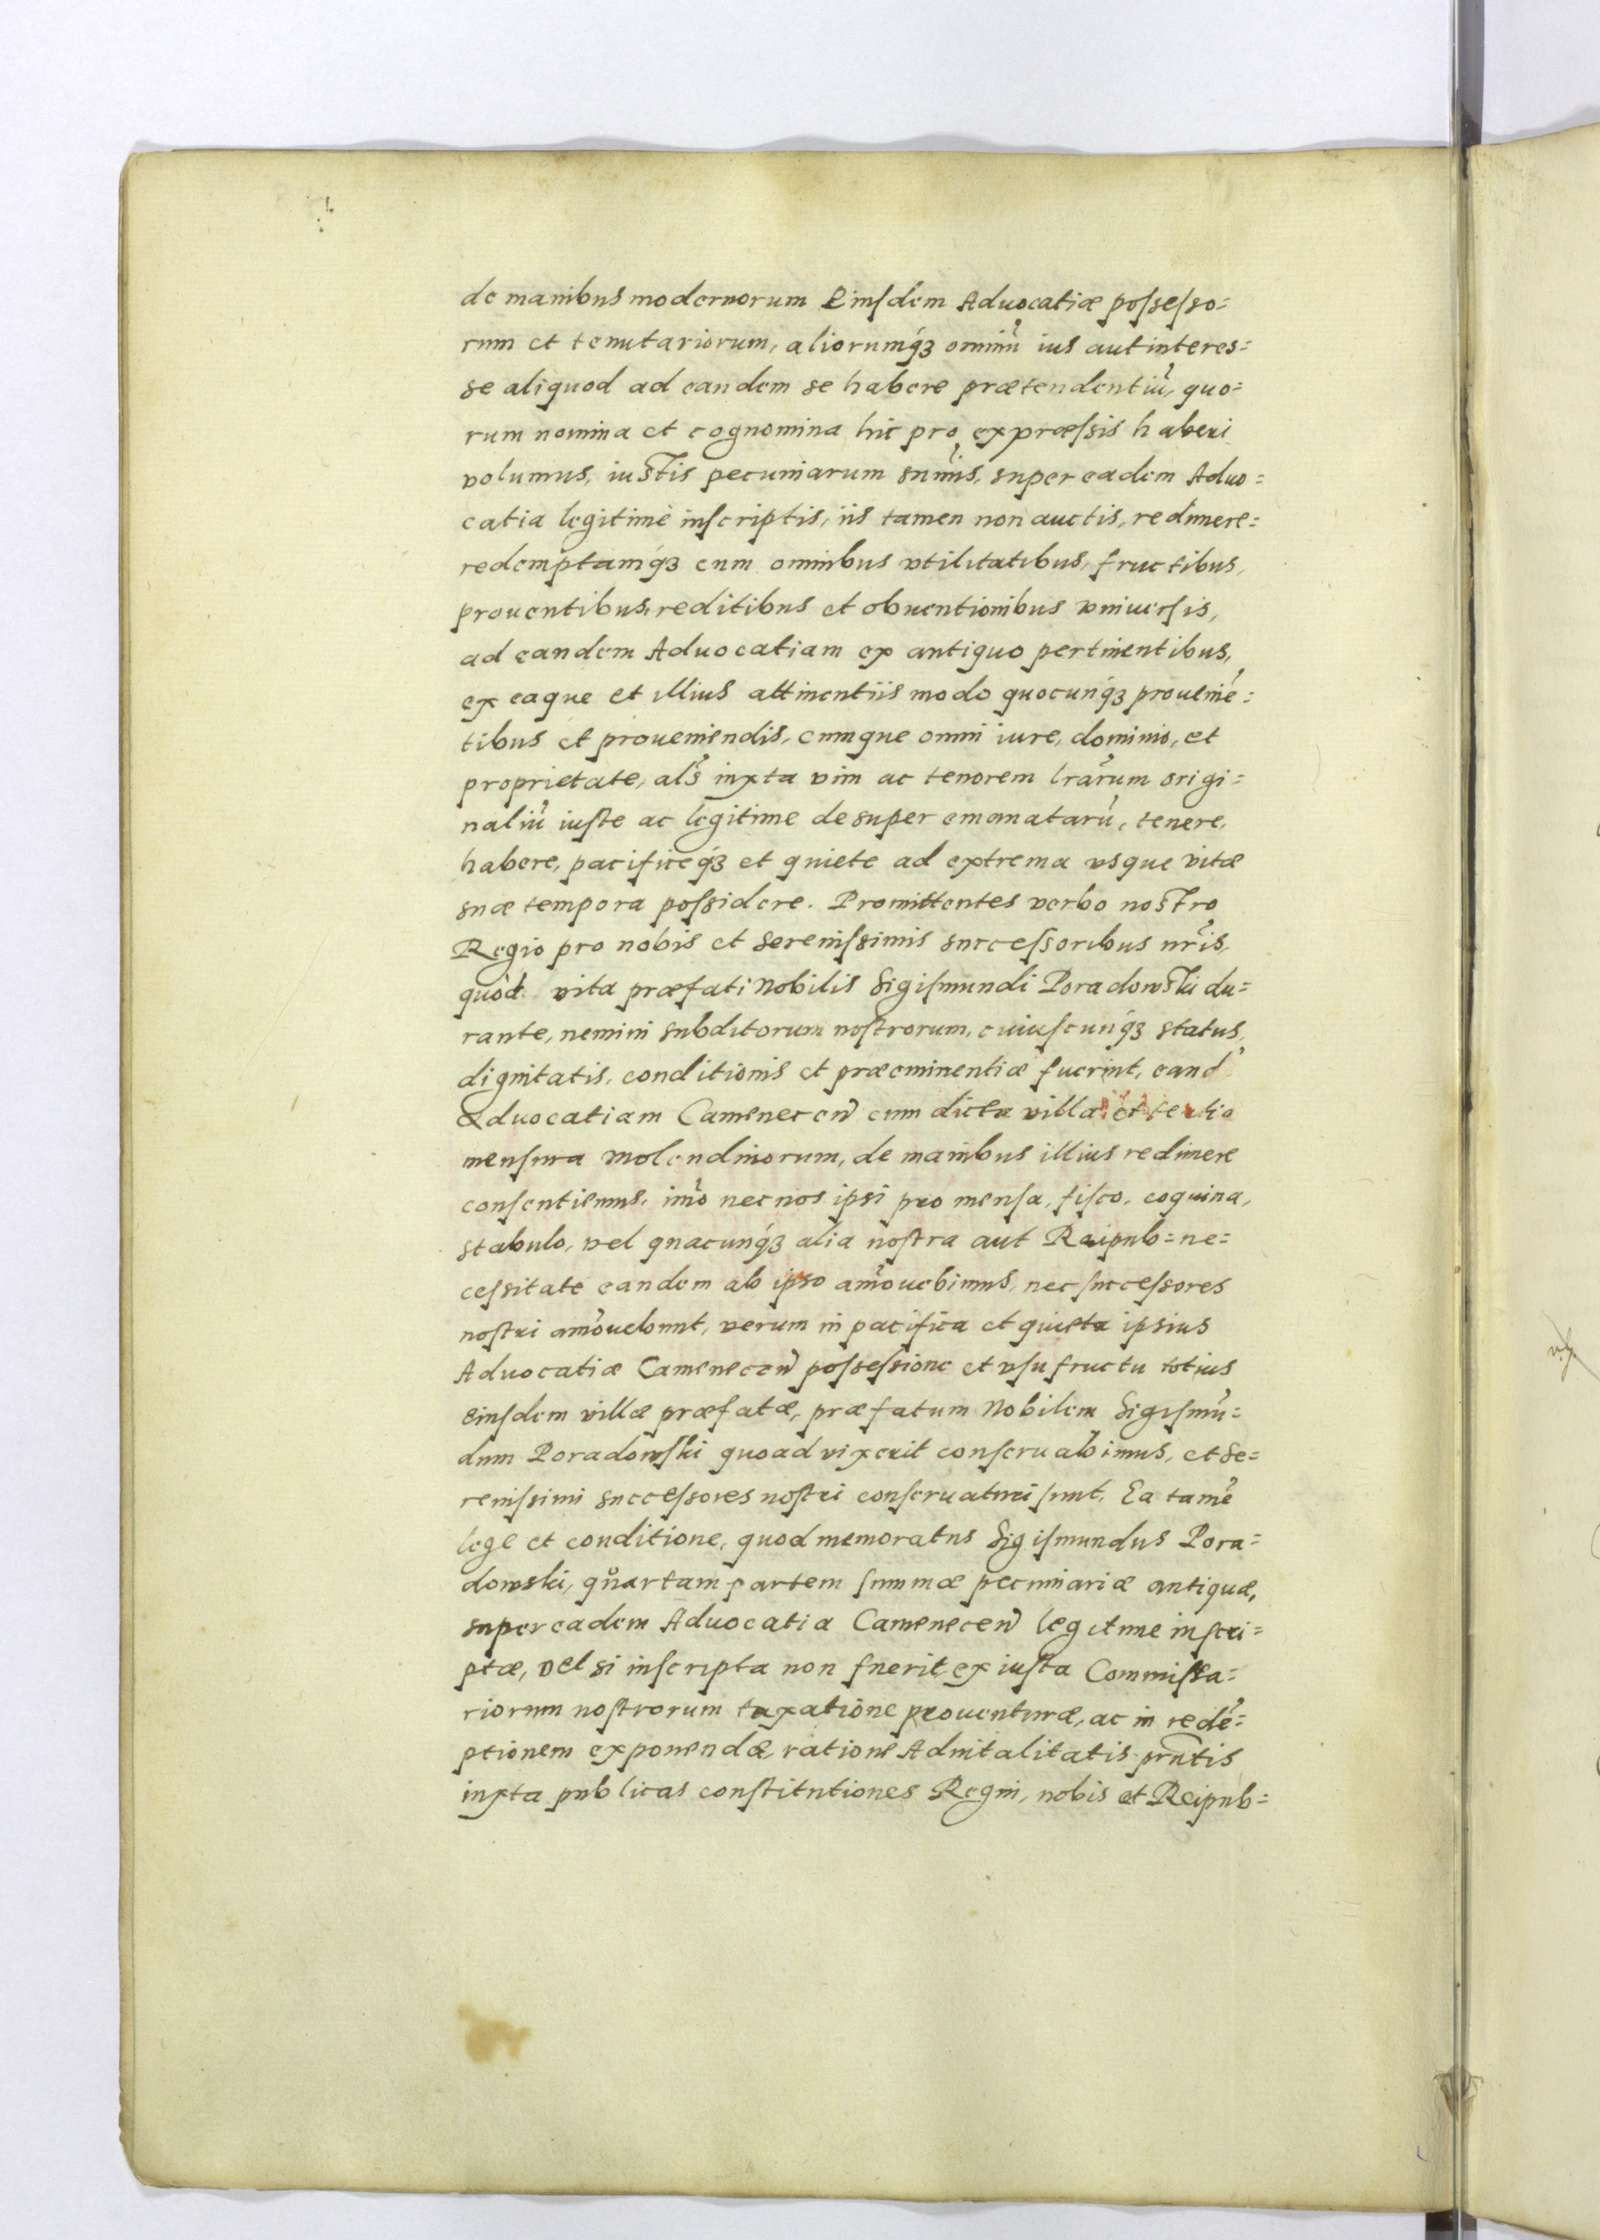 de manibus modernorum Eiusdem Advocatiæ possesso=
rum et tenutariorum, aliorumqꝫ omniũ ius aut interes=
se aliquod ad eandem se habere prætendentiũ, quo=
rum nomina et cognomina hic pro expræssis haberi
volumus, iustis pecuniarum sum̃is, super eadem Aduo=
catia legitimè inscriptis, iis tamen non auctis, redimere=
redemptamqꝫ cum omnibus vtilitatibus, fructibus,
prouentibus, reditibus et obuentionibus vniuersis,
ad eandem Aduocatiam ex antiquo pertinentibus,
ex eaque et illius attinentiis modo quocunqꝫ prouenie͂=
tibus et proueniendis, cumque omni iure, dominio, et
proprietate, als̃ iuxta vim ac tenorem lrãrum origi=
naliũ iuste ac legitime desuper emanatarũ, tenere,
habere, pacificeqꝫ et quiete ad extrema vsque vitæ
suæ tempora possidere. Promittentes verbo nostro
Regio pro nobis et Serenissimis successoribus nr̃is,
quòd vita præfati Nobilis Sigismundi Poradowski du=
rante, nemini subditorum nostrorum, cuiuscunqꝫ status,
dignitatis, conditionis et præeminentiæ fuerint, eand̃
Aduocatiam Camenecen̄ cum dicta villa et tertia
mensura molendinorum, de manibus illius redimere
consentiemus, im̃o nec nos ipsi pro mensa, fisco, coquina,
stabulo, vel quacunqꝫ alia nostra aut Reipub= ne=
cessitate eandem ab ipso am̃ouebimus, nec successores
nostri am̃ouebunt, verum in pacifica et quieta ipsius
Aduocatiæ Camenecen̄ possessione et vsufructu totius
Eiusdem villæ præfatæ, præfatum Nobilem Sigismũ=
dum Poradowski quoad vixerit conseruabimus, et Se=
renissimi successores nostri conseruaturi sunt. Ea tame͂
lege et conditione, quod memoratus Sigismundus Pora=
dowski, quartam partem summæ pecuniariæ antiquæ,
super eadem Aduocatia Camenecen̄ legitime inscri=
ptæ, vel si inscripta non fuerit, ex iusta Commissa=
riorum nostrorum taxatione prouenturæ, ac in rede͂=
ptionem exponendæ, ratione Aduitalitatis prñtis
iuxta publicas constitutiones Regni, nobis et Reipub=